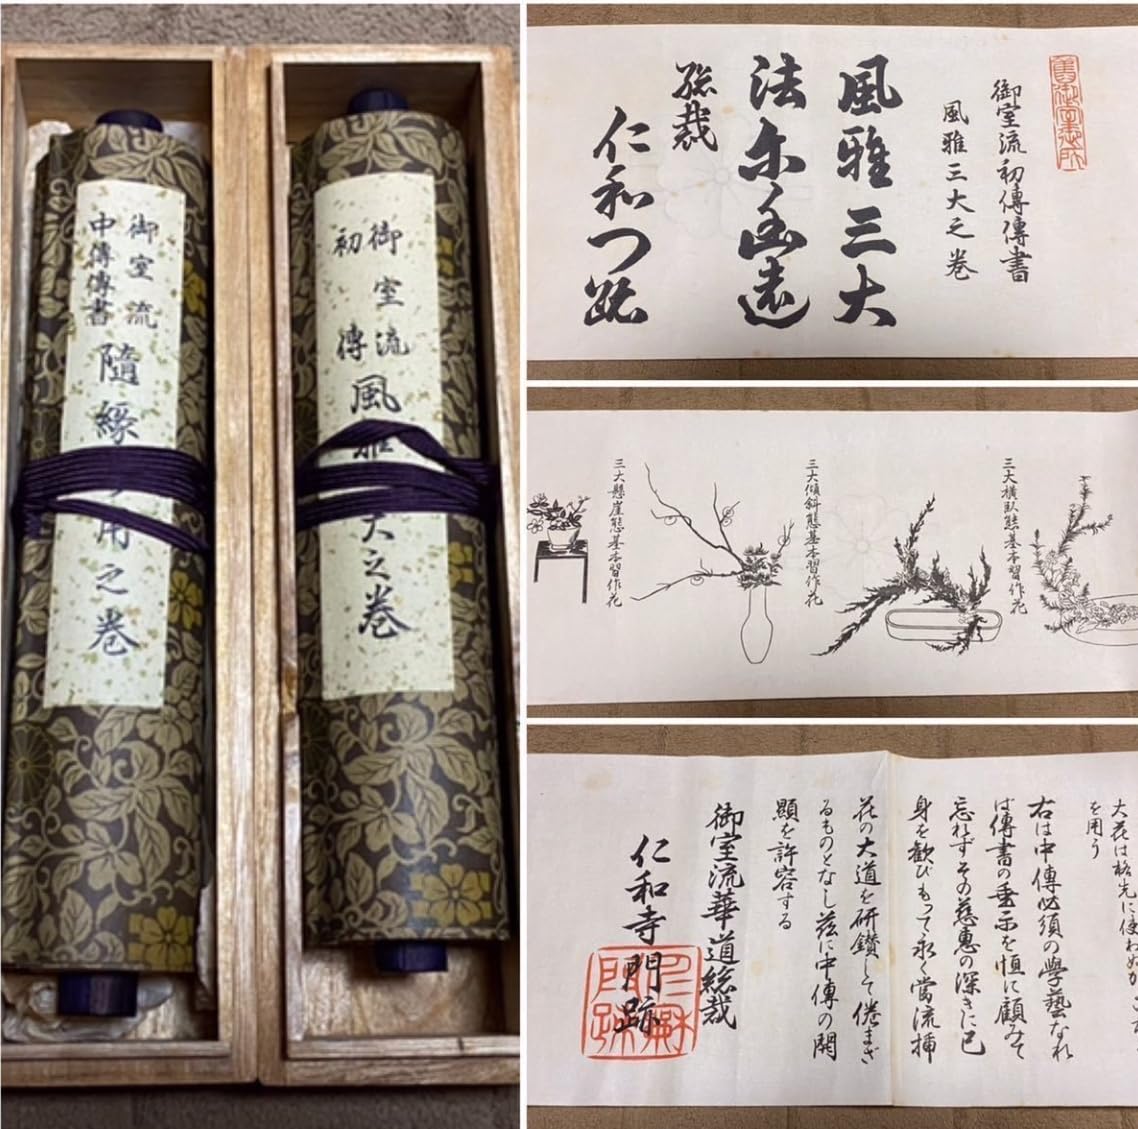 御室流
中傳傳書
隨縁
用之巻
御室流
初傳
風雅
大之巻
御室流初傳傳書
風雅三大之巻
風雅三大
法尓
総裁
仁和
三大横臥態基本習作花
三大傾斜態基本習作花
三大懸崖態基本習作花
大花は
を用う
右は中傳必須の學藝なれ
ば傳書の垂示を恒に顧みて
忘れずその慈惠の深きに己
身を歓びもって永く當流挿
花の大道を研鑚して倦まざ
るものとなし茲に中傳の開
顕を許容する
御室流華道総裁
仁和寺門跡